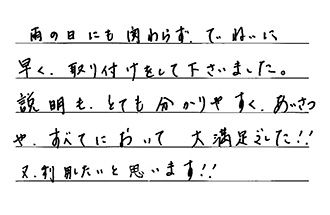 雨の日にも関わらず、ていねいに
早く、取り付けをして下さいました。
説明も、とても分かりやすく、あいさつ
や、すべてにおいて 大満足でした!!
又、利用したいと思います!!